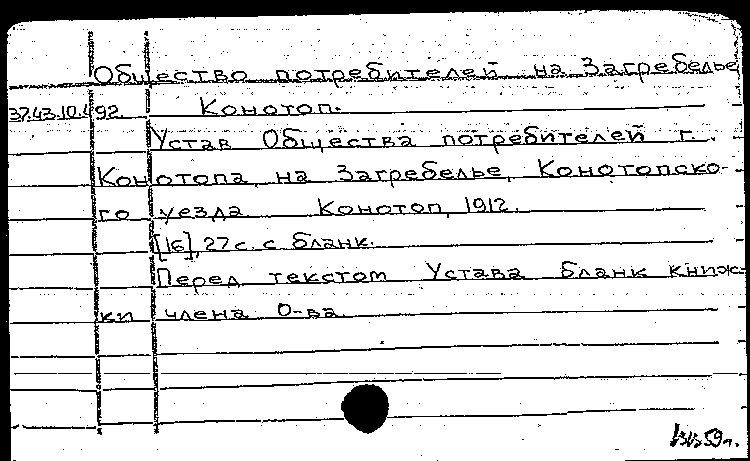 Общество потребителей на Загребелье
37.43.10.492. Конотоп.
Устав Общества потребителей г.
Конотопа, на Загребелье, Конотопско-
го уезда Конотоп, 1912.
[16], 27 с. с бланк.
Перед текстом Устава бланк книж-
ки члена О-ва.
59 г.